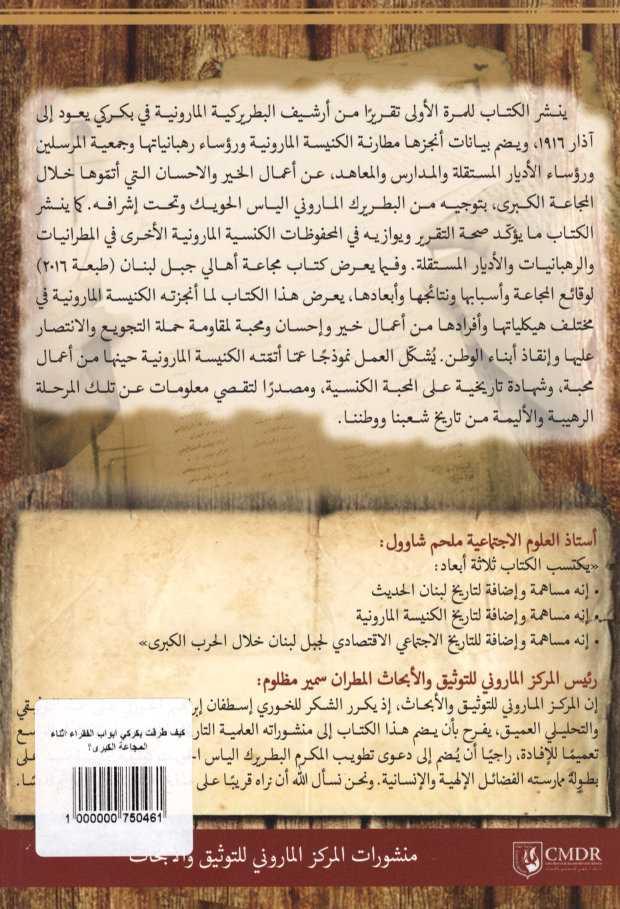 ينشر الكتاب للمرة الأولى تقريرًا من أرشيف البطريركية المارونية في بكركي يعود إلى
آذار ١٩١٦، ويضم بيانات أنجزها مطارنة الكنيسة المارونية ورؤساء رهبانياتها وجمعية المرسلين
ورؤساء الأديار المستقلة والمدارس والمعاهد، عن أعمال الخير والاحسان التي أتمّوها خلال
المجاعة الكبرى، بتوجيه من البطريرك الماروني الياس الحويك وتحت إشرافه. كما ينشر
الكتاب ما يؤكّد صحة التقرير ويوازيه في المحفوظات الكنسية المارونية الأخرى في المطرانيات
والرهبانيات والأديار المستقلة. وفيما يعرض كتاب مجاعة أهالي جبل لبنان (طبعة ٢٠١٦)
لوقائع المجاعة وأسبابها ونتائجها وأبعادها، يعرض هذا الكتاب لما أنجزته الكنيسة المارونية في
مختلف هيكلياتها وأفرادها من أعمال خير وإحسان ومحبة لمقاومة حملة التجويع والانتصار
عليها وإنقاذ أبناء الوطن. يُشكّل العمل نموذجًا عمّا أتمّته الكنيسة المارونية حينها من أعمال
محبة، وشهادة تاريخية على المحبة الكنسية، ومصدرًا لتقصي معلومات عن تلك المرحلة
الرهيبة والأليمة من تاريخ شعبنا ووطننا.
أستاذ العلوم الاجتماعية ملحم شاوول:
«يكتسب الكتاب ثلاثة أبعاد:
• إنه مساهمة وإضافة لتاريخ لبنان الحديث
• إنه مساهمة وإضافة لتاريخ الكنيسة المارونية
• إنه مساهمة وإضافة للتاريخ الاجتماعي الاقتصادي لجبل لبنان خلال الحرب الكبرى»
رئيس المركز الماروني للتوثيق والأبحاث المطران سمير مظلوم:
إن المركز الماروني للتوثيق والأبحاث، إذ يكرر الشكر للخوري إسطفان
والتحليلي العميق، يفرح بأن يضم هذا الكتاب إلى منشوراته العلمية
تعميمًا للإفادة، راجيًا أن يُضم إلى دعوى تطويب المكرم البطريرك الياس
بطولة ممارسته الفضائل الإلهية والإنسانية. ونحن نسأل الله أن نراه قريبًا على
كيف طرقت بكركي ابواب الفقراء اثناء
المجاعة الكبرى؟
1 000000 750461
منشورات المركز الماروني للتوثيق والأبحاث
CMDR